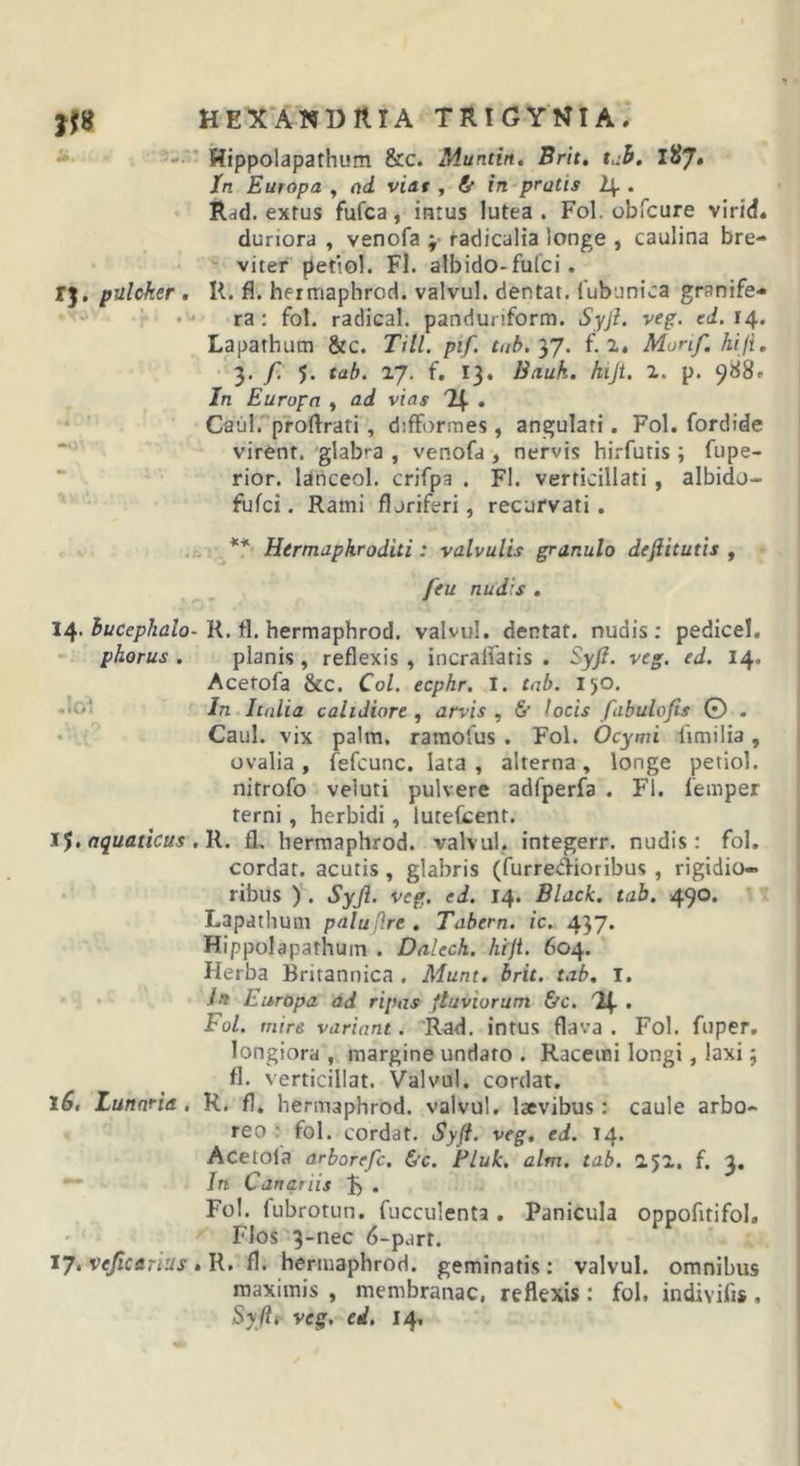 358 HEXANDRIA TRIGYNIA.
Hippolapathum &c. Muntin. Brit. tab. 187.
In Europa , ad vias , & in pratis ♃ .
Rad. extus fuſca , intus lutea . Fol. obſcure virid.
duriora , venoſa ; radicalia longe , caulina bre-
viter petiol. Fl. albido-fuſci .
13. pulcher . R. fl. hermaphrod. valvul. dentat. ſubunica granife-
ra : fol. radical. panduriform. Syſt. veg. ed. 14.
Lapathum &c. Till. piſ. tab. 37. f. 2. Moriſ. hiſt.
3. ſ. 5. tab. 27. f. 13. Bauh. hiſt. 2. p. 988.
In Europa , ad vias ♃ .
Caul. proſtrati , difformes , angulati . Fol. ſordide
virent. glabra , venoſa , nervis hirſutis ; ſupe-
rior. lanceol. criſpa . Fl. verticillati , albido-
fuſci . Rami floriferi , recurvati .
** Hermaphroditi : valvulis granulo deſtitutis ,
ſeu nudis .
14. bucephalo- R. fl. hermaphrod. valvul. dentat. nudis : pedicel.
phorus . planis , reflexis , incraſſatis . Syſt. veg. ed. 14.
Acetoſa &c. Col. ecphr. 1. tab. 150.
In Italia calidiore , arvis , & locis ſabuloſis ☉ .
Caul. vix palm. ramoſus . Fol. Ocymi ſimilia ,
ovalia , ſeſcunc. lata , alterna , longe petiol.
nitroſo veluti pulvere adſperſa . Fl. ſemper
terni , herbidi , luteſcent.
15. aquaticus . R. fl. hermaphrod. valvul. integerr. nudis : fol.
cordat. acutis , glabris (ſurrectioribus , rigidio-
ribus ) . Syſt. veg. ed. 14. Black. tab. 490.
Lapathum paluſtre . Tabern. ic. 437.
Hippolapathum . Dalech. hiſt. 604.
Herba Britannica . Munt. brit. tab. 1.
In Europa ad ripas fluviorum &c. ♃ .
Fol. mire variant . Rad. intus flava . Fol. ſuper.
longiora , margine undato . Racemi longi , laxi ;
fl. verticillat. Valvul. cordat.
16. Lunaria . R. fl. hermaphrod. valvul. lævibus : caule arbo-
reo : fol. cordat. Syſt. veg. ed. 14.
Acetoſa arboreſc. &c. Pluk. alm. tab. 252. f. 3.
In Canariis ♄ .
Fol. ſubrotun. ſucculenta . Panicula oppoſitifol.
Flos 3-nec 6-part.
17. veſicarius . R. fl. hermaphrod. geminatis : valvul. omnibus
maximis , membranac. reflexis : fol. indiviſis .
Syſt. veg. ed. 14.